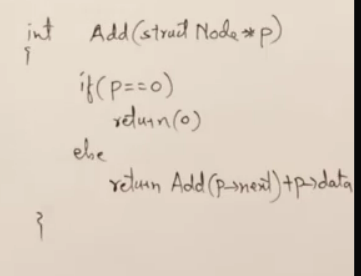 int Add(struct Node *p)
{
if(p==0)
return(0)
else
return Add(p->next)+p->data
}